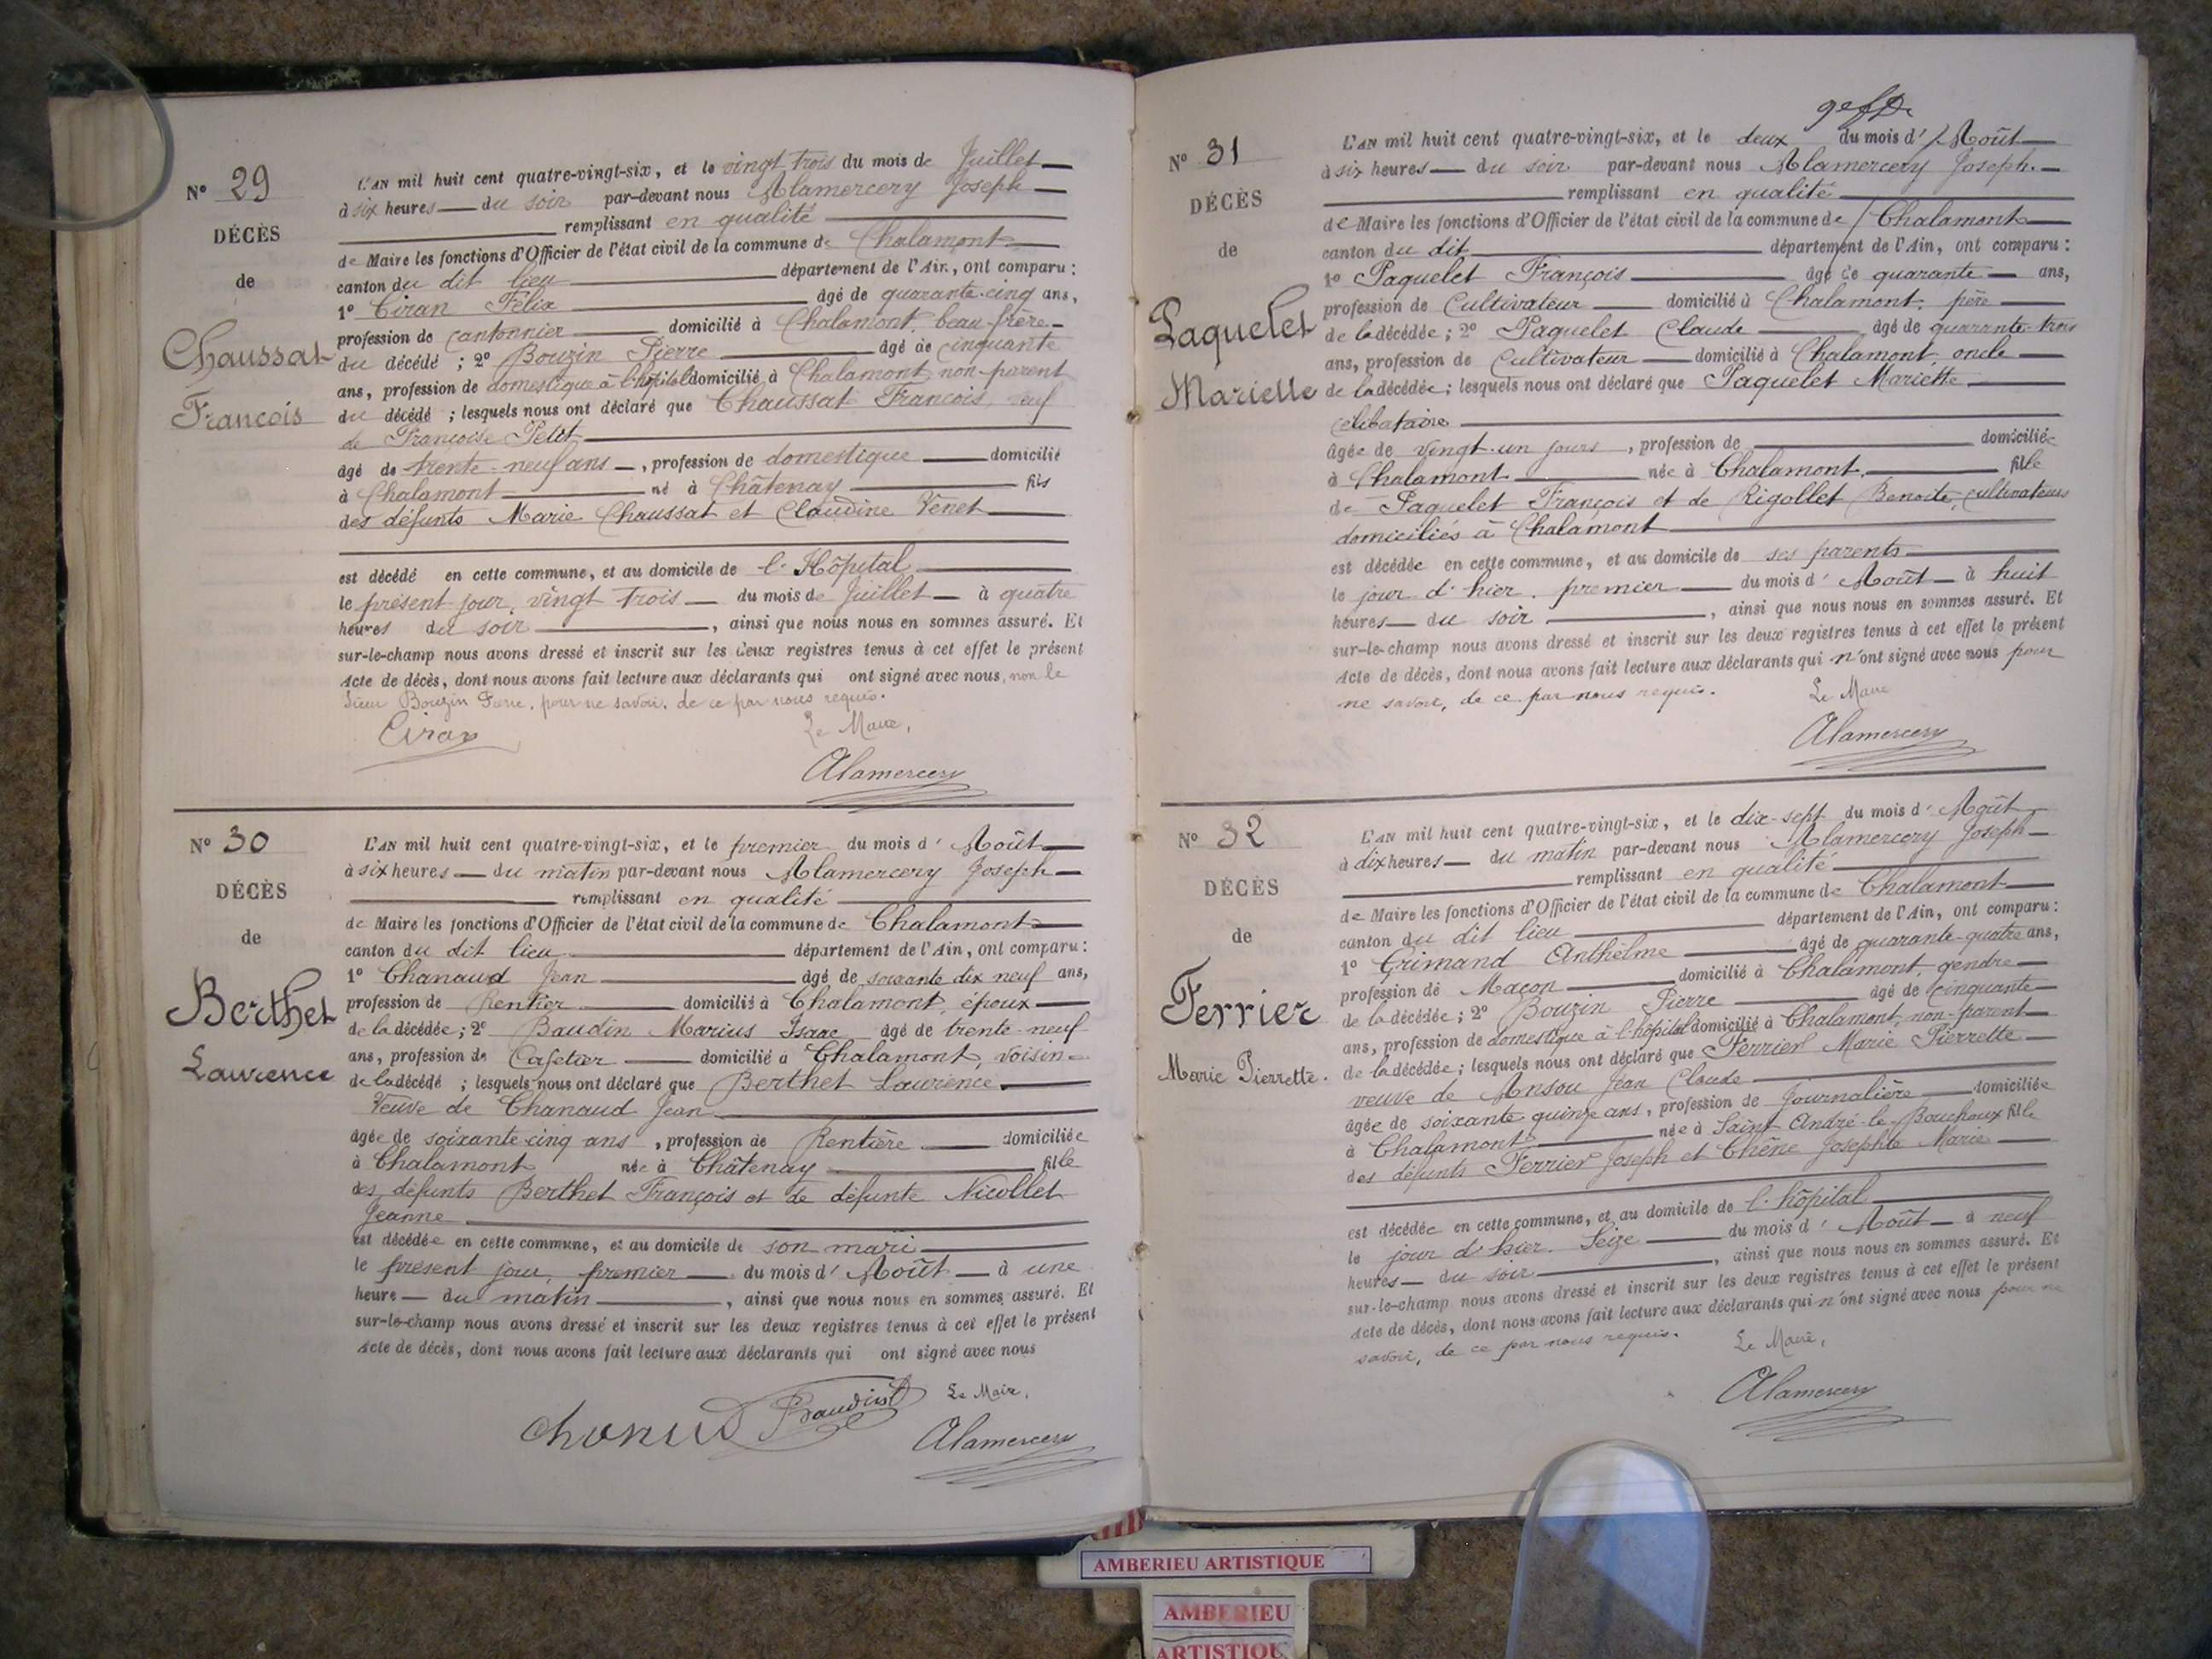 N° 29
DÉCÈS
de
Chaussat
François
L'AN mil huit cent quatre-vingt-six, et le vingt trois du mois de Juillet
à six heures du soir par-devant nous Alamercery Joseph
remplissant en qualité
de Maire les fonctions d'Officier de l'état civil de la commune de Chalamont
canton du dit lieu département de l'Ain, ont comparu :
1° Ciran Félix âgé de quarante-cinq ans,
profession de cantonnier domicilié à Chalamont, beau-frère
du décédé ; 2° Bouzin Pierre âgé de cinquante
ans, profession de domestique à l'hôpital domicilié à Chalamont non-parent
du décédé ; lesquels nous ont déclaré que Chaussat François, veuf
de Françoise Petit
âgé de trente-neuf ans, profession de domestique domicilié
à Chalamont né à Châtenay fils
des défunts Marie Chaussat et Claudine Venet
est décédé en cette commune, et au domicile de l'Hôpital
le présent jour, vingt trois du mois de Juillet à quatre
heures du soir, ainsi que nous nous en sommes assuré. Et
sur-le-champ nous avons dressé et inscrit sur les deux registres tenus à cet effet le présent
acte de décès, dont nous avons fait lecture aux déclarants qui ont signé avec nous, non le
sieur Bouzin Pierre, pour ne savoir, de ce par nous requis.
Ciran
Le Maire,
Alamercery
N° 30
DÉCÈS
de
Berthet
Laurence
L'AN mil huit cent quatre-vingt-six, et le premier du mois d'Août
à six heures du matin par-devant nous Alamercery Joseph
remplissant en qualité
de Maire les fonctions d'Officier de l'état civil de la commune de Chalamont
canton du dit lieu département de l'Ain, ont comparu :
1° Chanaud Jean âgé de soixante dix neuf ans,
profession de Rentier domicilié à Chalamont, époux
de la décédée ; 2° Baudin Marius Isaac âgé de trente-neuf
ans, profession de Cafetier domicilié à Chalamont, voisin
de la décédé ; lesquels nous ont déclaré que Berthet Laurence
Veuve de Chanaud Jean
âgée de soixante-cinq ans, profession de Rentière domiciliée
à Chalamont née à Châtenay fille
des défunts Berthet François et de défunte Nicollet
Jeanne
est décédée en cette commune, et au domicile de son mari
le présent jour, premier du mois d'Août à une
heure du matin, ainsi que nous nous en sommes assuré. Et
sur-le-champ nous avons dressé et inscrit sur les deux registres tenus à cet effet le présent
acte de décès, dont nous avons fait lecture aux déclarants qui ont signé avec nous
Baudin Le Maire,
Alamercery
N° 31
DÉCÈS
de
Paquelet
Mariette
L'AN mil huit cent quatre-vingt-six, et le deux du mois d'Août
à six heures du soir par-devant nous Alamercery Joseph.
remplissant en qualité
de Maire les fonctions d'Officier de l'état civil de la commune de Chalamont
canton du dit département de l'Ain, ont comparu :
1° Paquelet François âgé de quarante ans,
profession de Cultivateur domicilié à Chalamont, père
de la décédée ; 2° Paquelet Claude âgé de quarante-trois
ans, profession de Cultivateur domicilié à Chalamont, oncle
de la décédée ; lesquels nous ont déclaré que Paquelet Mariette
célibataire
âgée de vingt-un jours, profession de domiciliée
à Chalamont née à Chalamont, fille
de Paquelet François et de Rigollet Benoite, cultivateurs
domiciliés à Chalamont
est décédée en cette commune, et au domicile de ses parents
le jour d'hier, premier du mois d'Août à huit
heures du soir, ainsi que nous nous en sommes assuré. Et
sur-le-champ nous avons dressé et inscrit sur les deux registres tenus à cet effet le présent
acte de décès, dont nous avons fait lecture aux déclarants qui n'ont signé avec nous pour
ne savoir, de ce par nous requis. Le Maire
Alamercery
N° 32
DÉCÈS
de
Ferrier
Marie Pierrette.
L'AN mil huit cent quatre-vingt-six, et le dix-sept du mois d'Août
à dix heures du matin par-devant nous Alamercery Joseph
remplissant en qualité
de Maire les fonctions d'Officier de l'état civil de la commune de Chalamont
canton du dit lieu département de l'Ain, ont comparu :
1° Grimand Anthelme âgé de quarante-quatre ans,
profession de Maçon domicilié à Chalamont, gendre
de la décédée ; 2° Bouzin Pierre âgé de cinquante
ans, profession de domestique à l'hôpital domicilié à Chalamont, non-parent
de la décédée ; lesquels nous ont déclaré que Ferrier Marie Pierrette
veuve de Ansou Jean Claude
âgée de soixante quinze ans, profession de Journalière domiciliée
à Chalamont née à Saint André-le-Bouchoux fille
des défunts Ferrier Joseph et Chêne Josephte Marie
est décédée en cette commune, et au domicile de l'hôpital
le jour d'hier. Seize du mois d'Août à neuf
heures du soir, ainsi que nous nous en sommes assuré. Et
sur-le-champ nous avons dressé et inscrit sur les deux registres tenus à cet effet le présent
acte de décès, dont nous avons fait lecture aux déclarants qui n'ont signé avec nous pour ne
savoir, de ce par nous requis. Le Maire,
Alamercery
AMBERIEU ARTISTIQUE
AMBERIEU
ARTISTIQUE